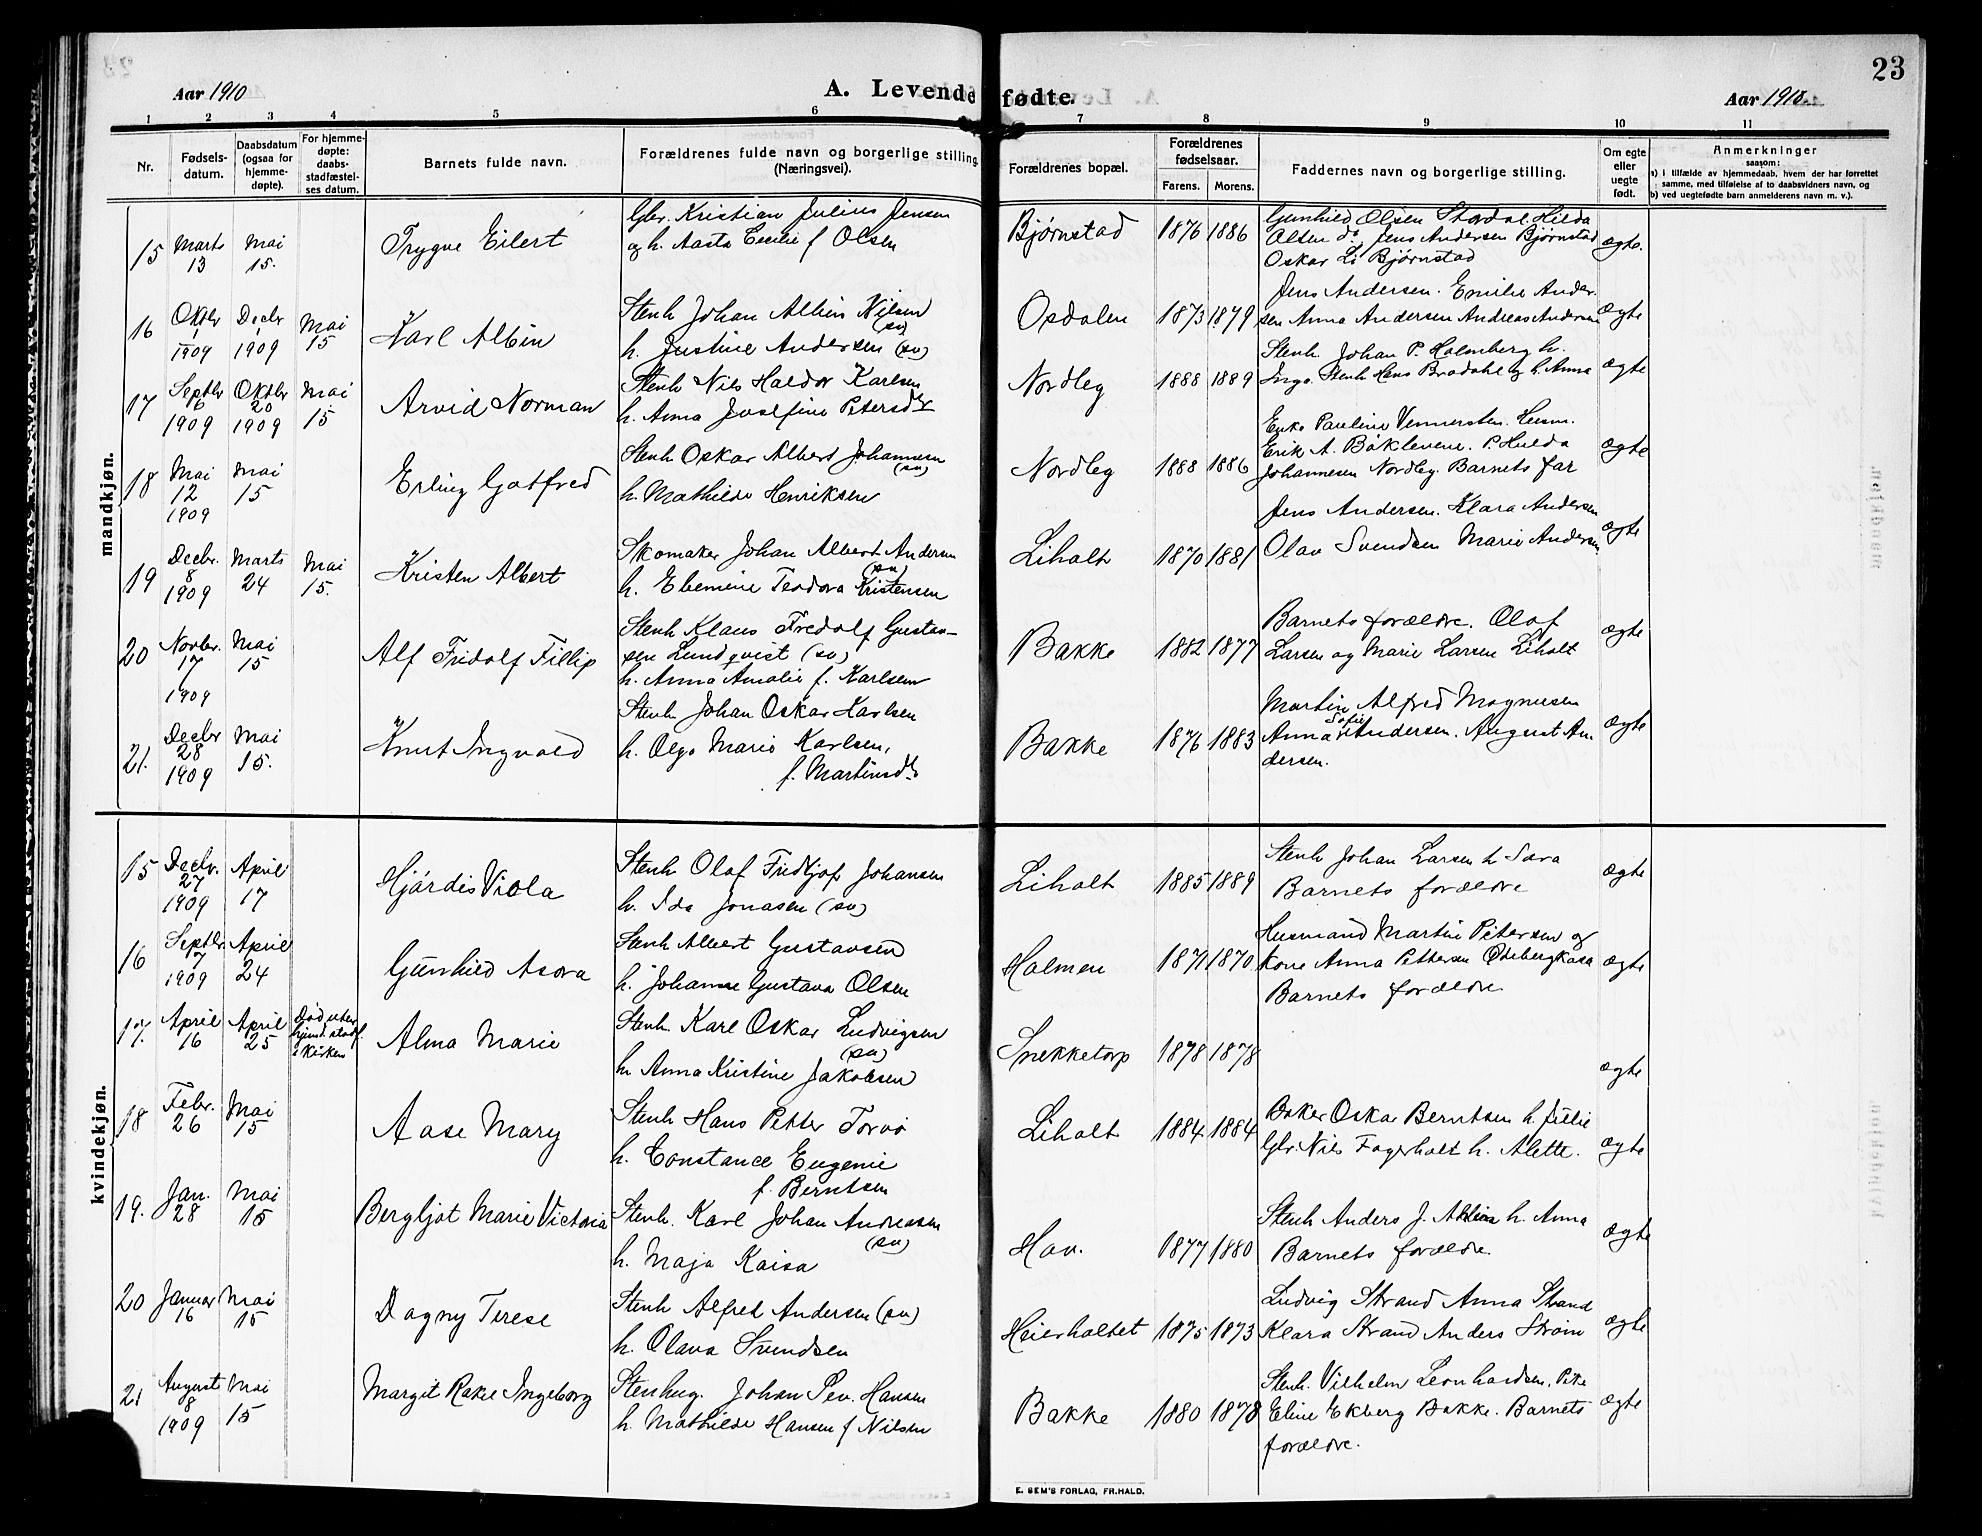 Aar 1910
A. Levendefødte.
Aar 1910.
23
1 2 3 4 5 6 7 8 9 10 11
Nr.
Fødsels-
datum.
Daabsdatum
(ogsaa for
hjemme-
døpte).
For hjemme-
døpte:
daabs-
stadfæstel-
ses datum.
Barnets fulde navn.
Forældrenes fulde navn og borgerlige stilling
(Næringsvei).
Forældrenes bopæl.
Forældrenes
fødselsaar.
Farens. Morens.
Faddernes navn og borgerlige stilling.
Om egte
eller
uegte
født.
Anmerkninger
saasom:
a) i tilfælde av hjemmedaab, hvem der har forrettet
samme, med tilføielse af to daabsvidners navn, og
b) ved uegtefødte børn anmelderens navn m. v.).
mandkjøn.
15 Marts 13 Mai 15. Trygve Eilert
Gbr. Kristian Julius Jensen
og h. Aasta Cecilie f Olsen
Bjørnstad 1876 1886
Gunhild Olsen Stordal. Hilda
Olsen do, Jens Andersen Bjørnstad
Oskar Li Bjørnstad
ægte.
16 Oktbr 1 1909 Decbr 1 1909 Mai 15 Karl Albin
Stenh Johan Albin Nilsen
(sv)
h. Justine Andersen (sv)
Osdalen 1873 1879
Jens Andersen. Emilie Ander-
sen Anna Andersen Andreas Andersen
ægte
17 Septbr 6 1909 Oktbr 20 1909 Mai 15 Arvid Norman
Stenh Nils Haldor Karlsen
h. Anna Josefine Petersdtr
Nordleg 1888 1889
Stenh. Johan P. Holmberg h.
Inga. Stenh Hans Bradahl og h. Anna
ægte
18 Mai 12 1909 Mai 15 Erling Gotfred
Stenh Oskar Albert Johannesen
(sv)
h. Mathilde Henriksen
Nordleg 1888 1886
Enke Pauline Vennersten. Husm.
Erik A. Bøklevene. P. Hulda
Johannesen Nordleg. Barnets far
ægte
19 Decbr. 8 1909 Marts 24 Mai 15. Kristen Albert
Skomaker Johan Albert Andersen
(sv)
h. Ebemine Teodora Kristensen
Liholt 1870 1881
Jens Andersen. Klara Andersen
Olav Svendsen Marie Andersen
ægte
20 Novbr. 17 1909 Mai 15 Alf Fridolf Fillip
Stenh Klaus Fredolf Gustav-
sen Lundqvist (sv)
h. Anna Amalie f. Karlsen
Bakke 1882 1877
Barnets forældre. Olaf
Larsen og Marie Larsen Liholt
ægte
21. Decbr 28 1909 Mai 15. Knut Ingvald
Stenh Johan Oskar Karlsen
h. Olga Marie Karlsen,
f. Martinsdtr
Bakke 1876 1883
Martin Alfred Magnusen
Anna Sofie Andersen. August An-
dersen.
ægte
kvindekjøn.
15 Decbr. 27 1909 April 17 Hjørdis Viola
Stenh Olaf Fridtjof Johansen
h. Ida Jonasen (sv)
Liholt 1885 1889
Stenh Johan Larsen h Sara
Barnets forældre
ægte
16 Septbr 7 1909 April 24 Gunhild Asora
Stenh Albert Gustavsen
h. Johanne Gustava Olsen
Holmen 1871 1870
Husmand Martin Petersen og
kone Anna Pettersen Ødebergkasa
Barnets forældre
ægte
17. April 16 April 25
Død uten
hjemd. stadf.
i kirken
Alma Marie
Stenh. Karl Oskar Ludvigsen
(sv)
h. Anna Kristine Jakobsen
Snekketorp 1878 1878
ægte
18 Febr. 26 Mai 15 Aase Mary
Stenh Hans Petter Torvø
h. Constance Eugenie
f. Berntsen
Liholt 1884 1884
Baker Oskar Berntsen h. Julie
Gbr. Nils Fagerholt h. Alette.
ægte
19. Jan. 28 Mai 15 Bergljot Marie Victoria
Stenh. Karl Johan Andreasen
(sv)
h. Maja Kaisa
Hov. 1877 1880
Stenh Anders J. h. Anna
Barnets forældre.
ægte
20 Januar 16 Mai 15 Dagny Terese
Stenh Alfred Andersen (sv)
h. Olava Svendsen
Heierholtet 1875 1873
Ludvig Strand Anna Strand
Klara Strand Anders Strøm
ægte
21 August 8 1909 Mai 15 Margit Rakel Ingeborg
Stenhug. Johan Sev. Hansen
h. Mathilde Hansen f Nilsen
Bakke 1880 1878
Stenh. Vilhelm Leonhardsen. Pike
Eline Ekberg Bakke. Barnets
forældre.
ægte
E. SEM'S FORLAG, FR.HALD.